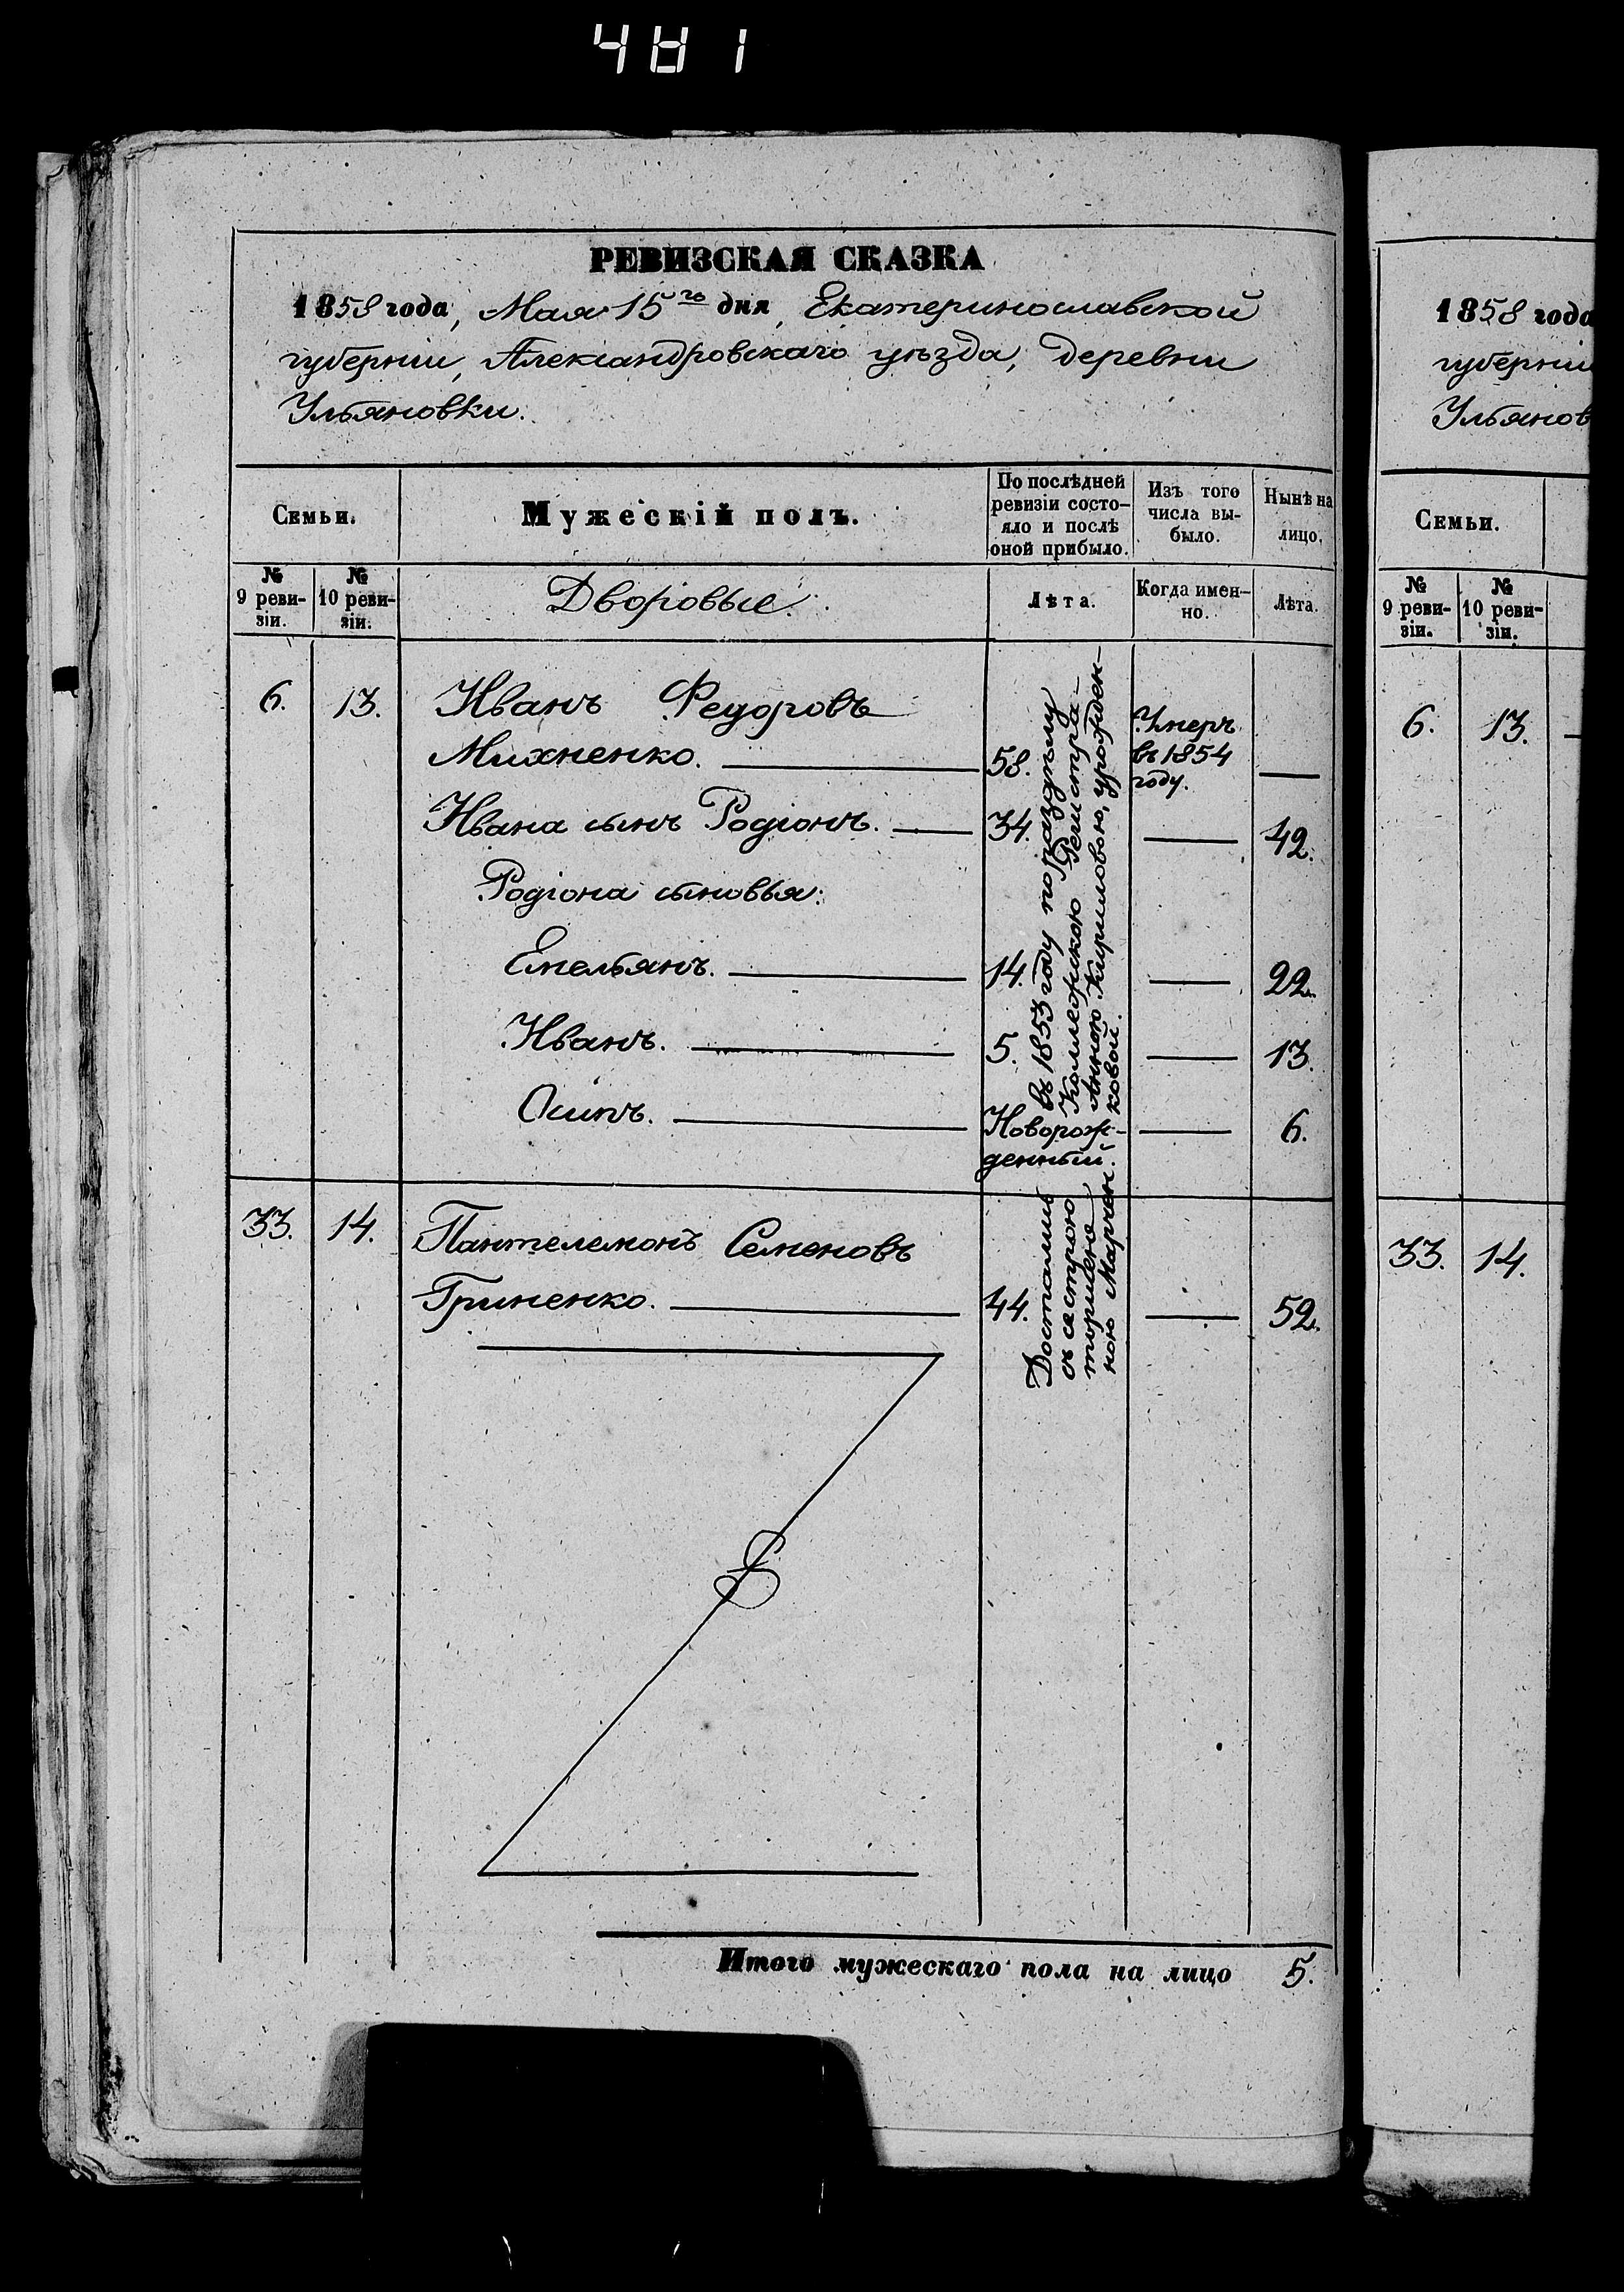 481
РЕВИЗСКАЯ СКАЗКА
1858 года, Мая 15го дня, Екатеринославской
губернии, Александровскаго уѣзда, деревни
Ульяновки.
Семьи.
Мужескій полъ.
По послѣдней
ревизіи состо-
яло и послѣ
оной прибыло.
Изъ того
числа вы-
было.
Нынѣ на
лицо.
№
9 реви-
зіи.
№
10 реви-
зіи.
Дворовые.
Лѣта.
Когда имен-
но.
Лѣта.
6. 13. Иванъ Федоровъ
Михненко. 58. Умеръ
въ 1854
году.
Ивана сынъ Родіонъ. 34. 42.
Родіона сыновья:
Емельянъ. 14. 22.
Иванъ. 5. 13.
Осипъ. Новорож-
денный. 6.
33. 14. Пантелемонъ Семеновъ
Гриненко. 44. 52.
Достались въ 1853 году по раздѣлу
съ сестрою Коллежскою Регистра-
торшею Анною Кириловою, урожден-
ною Марченковой.
Итого мужескаго пола на лицо 5.
1858 года
губерніи
Ульянов
Семьи.
№
9 реви-
зіи.
№
10 реви-
зіи.
6. 13.
33. 14.